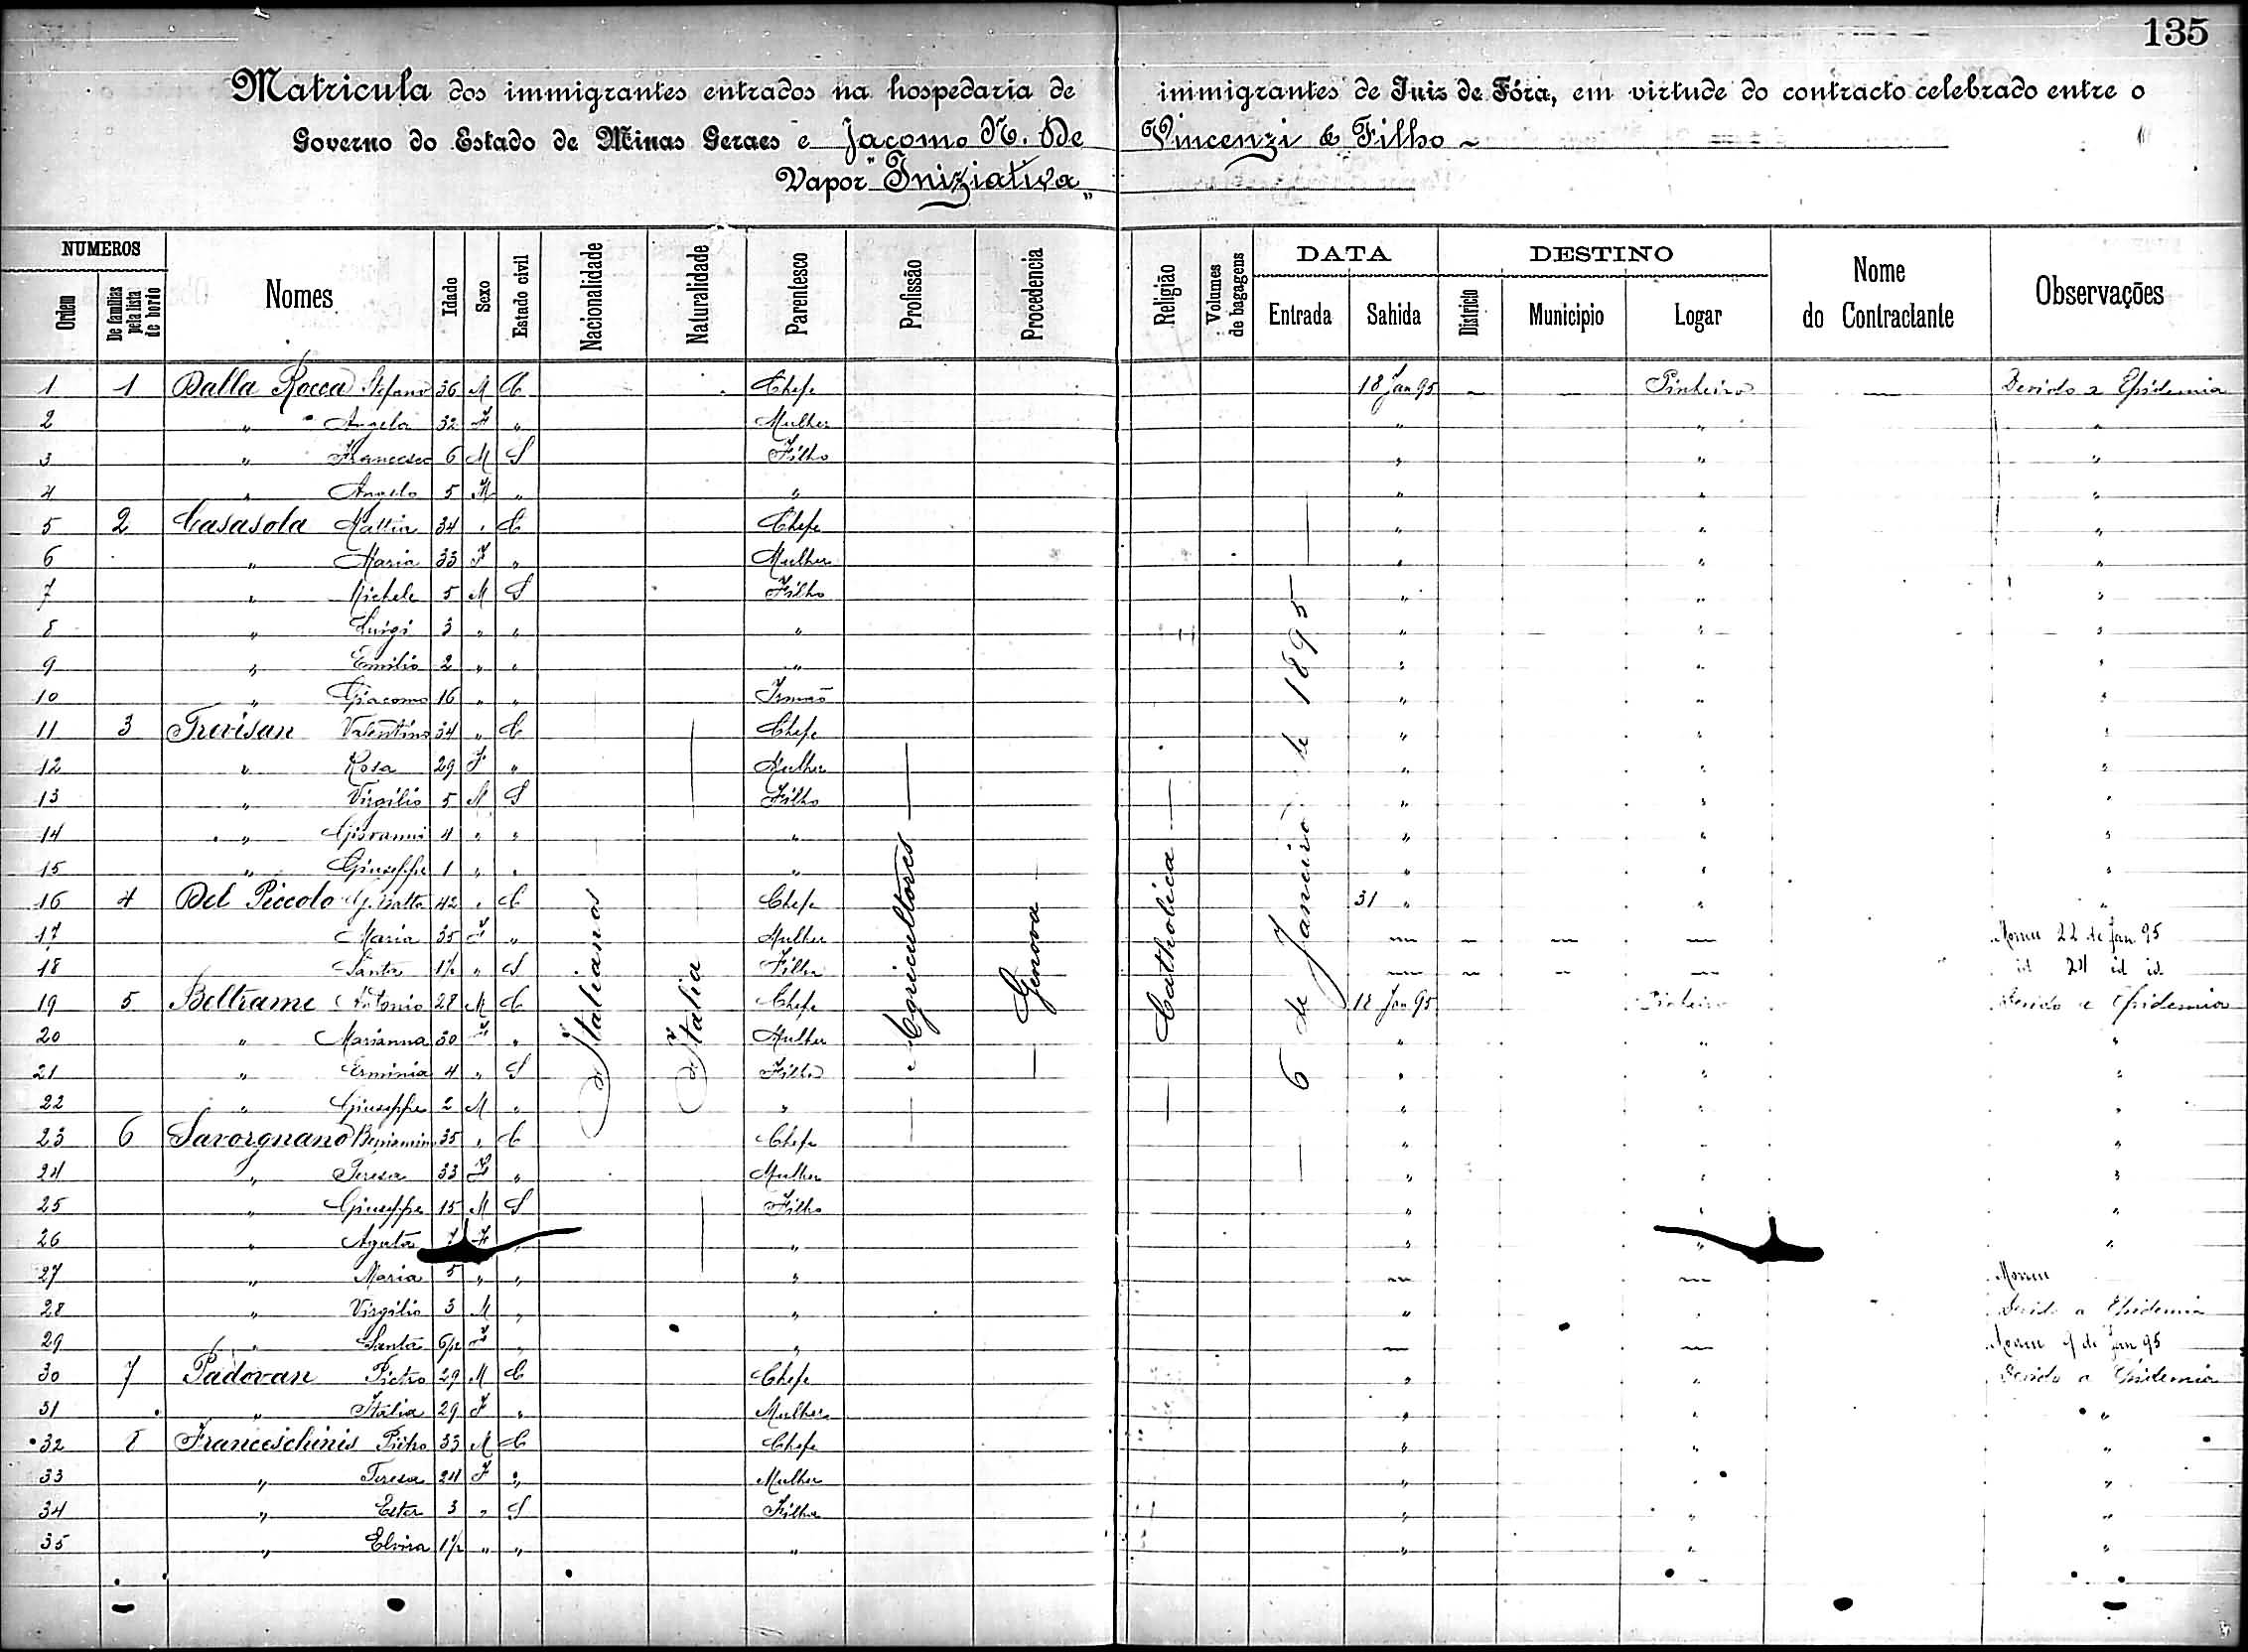 135
Matricula dos immigrantes entrados na hospedaria de immigrantes de Juiz de Fóra, em virtude do contracto celebrado entre o
Governo do Estado de Minas Geraes e Jacomo N. De Vincenzi & Filho
Vapor "Iniziativa"
NUMEROS DATA DESTINO
Ordem De familias pela lista de bordo Nomes Idade Sexo Estado civil Nacionalidade Naturalidade Parentesco Profissão Procedencia Religião Volumes de bagagens Entrada Sahida Districto Municipio Logar Nome do Contractante Observações
1 1 Dalla Rocca Stefano 36 M C Chefe 18 Jan 95 — — Pinheiro — Devido a Epidemia
2 " Angela 32 F " Mulher " " "
3 " Francesco 6 M S Filho " " "
4 " Angelo 5 M " " " " "
5 2 Casasola Mattia 34 " C Chefe " " "
6 " Maria 33 F " Mulher " " "
7 " Michele 5 M S Filho " " "
8 " Luigi 3 " " " " " "
9 " Emilio 2 " " " " " "
10 " Giacomo 16 " " Irmão " " "
11 3 Trevisan Valentino 34 " C Chefe " " "
12 " Rosa 29 F " Mulher " " "
13 " Virgilio 5 M S Filho " " "
14 " Giovanni 4 " " " " " "
15 " Giuseppe 1 " " " " " "
16 4 Del Piccolo G. Batta 42 " C Chefe 31 " " "
17 Maria 35 F " Mulher — — — — Morreu 22 de Jan 95
18 Santa 1½ " S Filha — — — — id 24 id id
19 5 Beltrame Antonio 28 M C Chefe 18 Jan 95 Pinheiro Devido a Epidemia
20 " Marianna 30 F " Mulher " " "
21 " Erminia 4 " S Filha " " "
22 " Giuseppe 2 M " " " " "
23 6 Savorgnano Beniamin 35 " C Chefe " " "
24 " Teresa 33 F " Mulher " " "
25 " Giuseppe 15 M S Filho " " "
26 " Agata 7 F " " " " "
27 " Maria 5 " " " — — Morreu
28 " Virgilio 3 M " " " " Devido a Epidemia
29 " Santa 6/12 F " " — — Morreu 9 de Jan 95
30 7 Padovan Pietro 29 M C Chefe " " Devido a Epidemia
31 " Italia 29 F " Mulher " " "
32 8 Franceschinis Pietro 33 M C Chefe " " "
33 " Teresa 24 F " Mulher " " "
34 " Ester 3 " S Filha " " "
35 " Elvira 1½ " " " " " "
Italianos
Italia
Agricultores
Genova
Catholica
6 de Janeiro de 1895